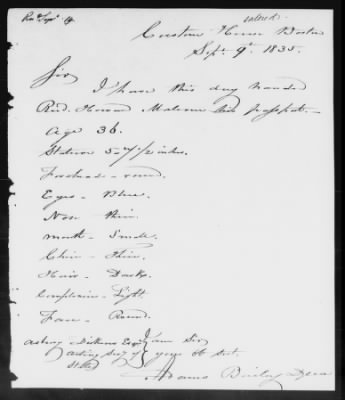 Custom House Boston
Sept. 9th 1835.
Sir
I have this day handed
Revd. Howard Malcom his passport.
Age 36.
Stature 5 1/2 inches.
Forehead - round.
Eyes - Blue.
Nose thin.
mouth - Small.
Chin - Thin.
Hair - Dark.
Complexion - Light.
Face - Round.
Asbury Dickins Esq. I am Sir
acting Secy of your Obt Sert.
State
Adams Bailey